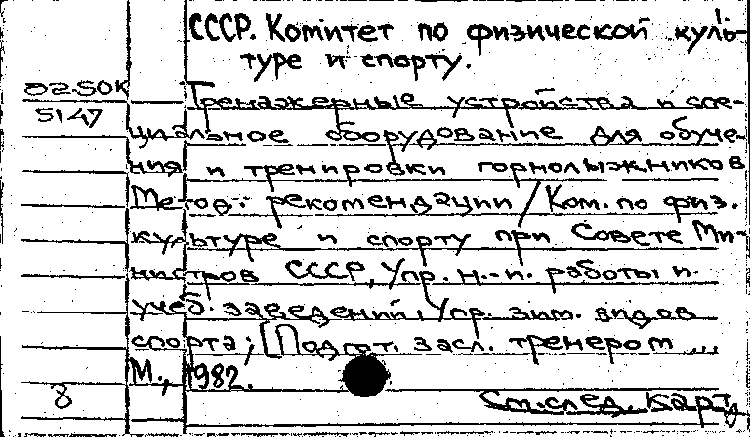 СССР. Комитет по физической куль-
туре и спорту.
82-50К
5147
Тренажерные устройства и спе-
циальное оборудование для обуче-
ния и тренировки горнолыжников
Метод. рекомендации / Ком. по физ.
культуре и спорту при Совете Ми-
нистров СССР, Упр. н.-и. работы и
учеб. заведений, Упр. зим. видов
спорта; [Подгот. засл. тренером ...
М., 1982.
8
См. след. карт.